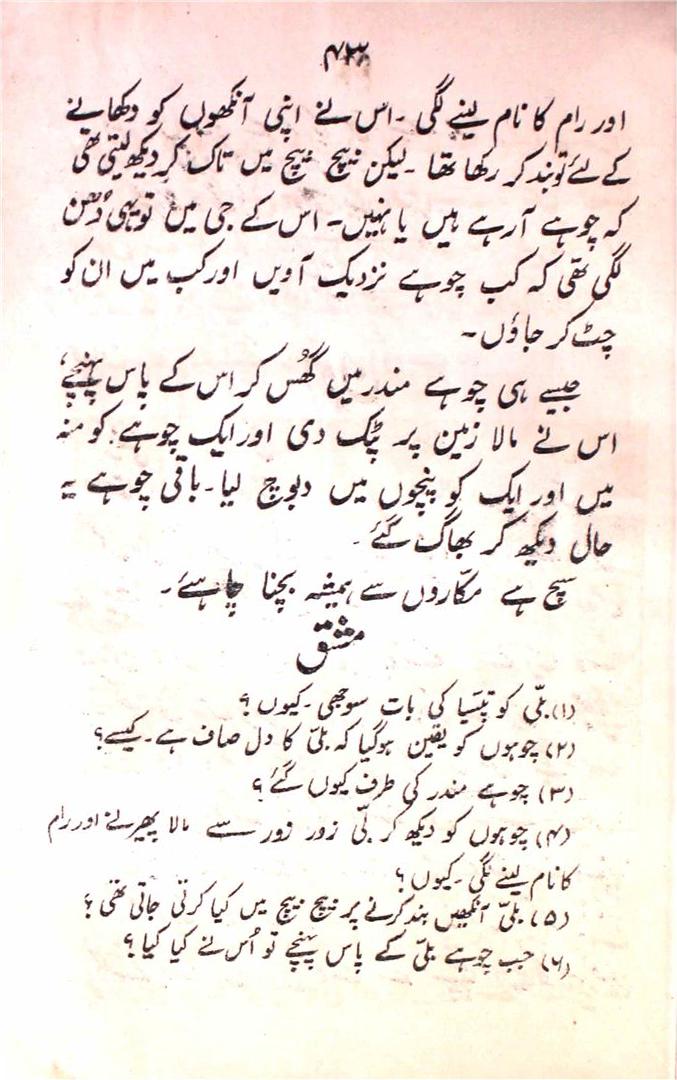 ۴۳
اور رام کا نام لینے لگی ۔ اس نے اپنی آنکھوں کو دکھانے
کے لئے تو بند کر رکھا تھا ۔ لیکن بیچ بیچ میں تاک کر دیکھ لیتی تھی
کہ چوہے آرہے ہیں یا نہیں ۔ اس کے جی میں تو یہی دُھن
لگی تھی کہ کب چوہے نزدیک آویں اور کب میں ان کو
چٹ کر جاؤں ۔
جیسے ہی چوہے مندر میں گھُس کر اس کے پاس پہنچے،
اس نے مالا زمین پر پٹک دی اور ایک چوہے کو منہ
میں اور ایک کو پنجوں میں دبوچ لیا ۔ باقی چوہے یہ
حال دیکھ کر بھاگ گئے ۔
سچ ہے مکّاروں سے ہمیشہ بچنا چاہئے ۔
مشق
(۱) بلّی کو تپسّیا کی بات سوجھی ۔ کیوں ؟
(۲) چوہوں کو یقین ہوگیا کہ بلّی کا دل صاف ہے ۔ کیسے ؟
(۳) چوہے مندر کی طرف کیوں گئے ؟
(۴) چوہوں کو دیکھ کر بلّی زور زور سے مالا پھیرنے اور رام
کا نام لینے لگی ۔ کیوں ؟
(۵) بلّی آنکھیں بند کرنے پر بیچ بیچ میں کیا کرتی جاتی تھی ؟
(۶) جب چوہے بلّی کے پاس پہنچے تو اُس نے کیا کیا ؟